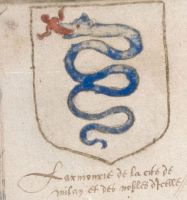 Larmoirie de la cité de
milan et des nobles dicelle